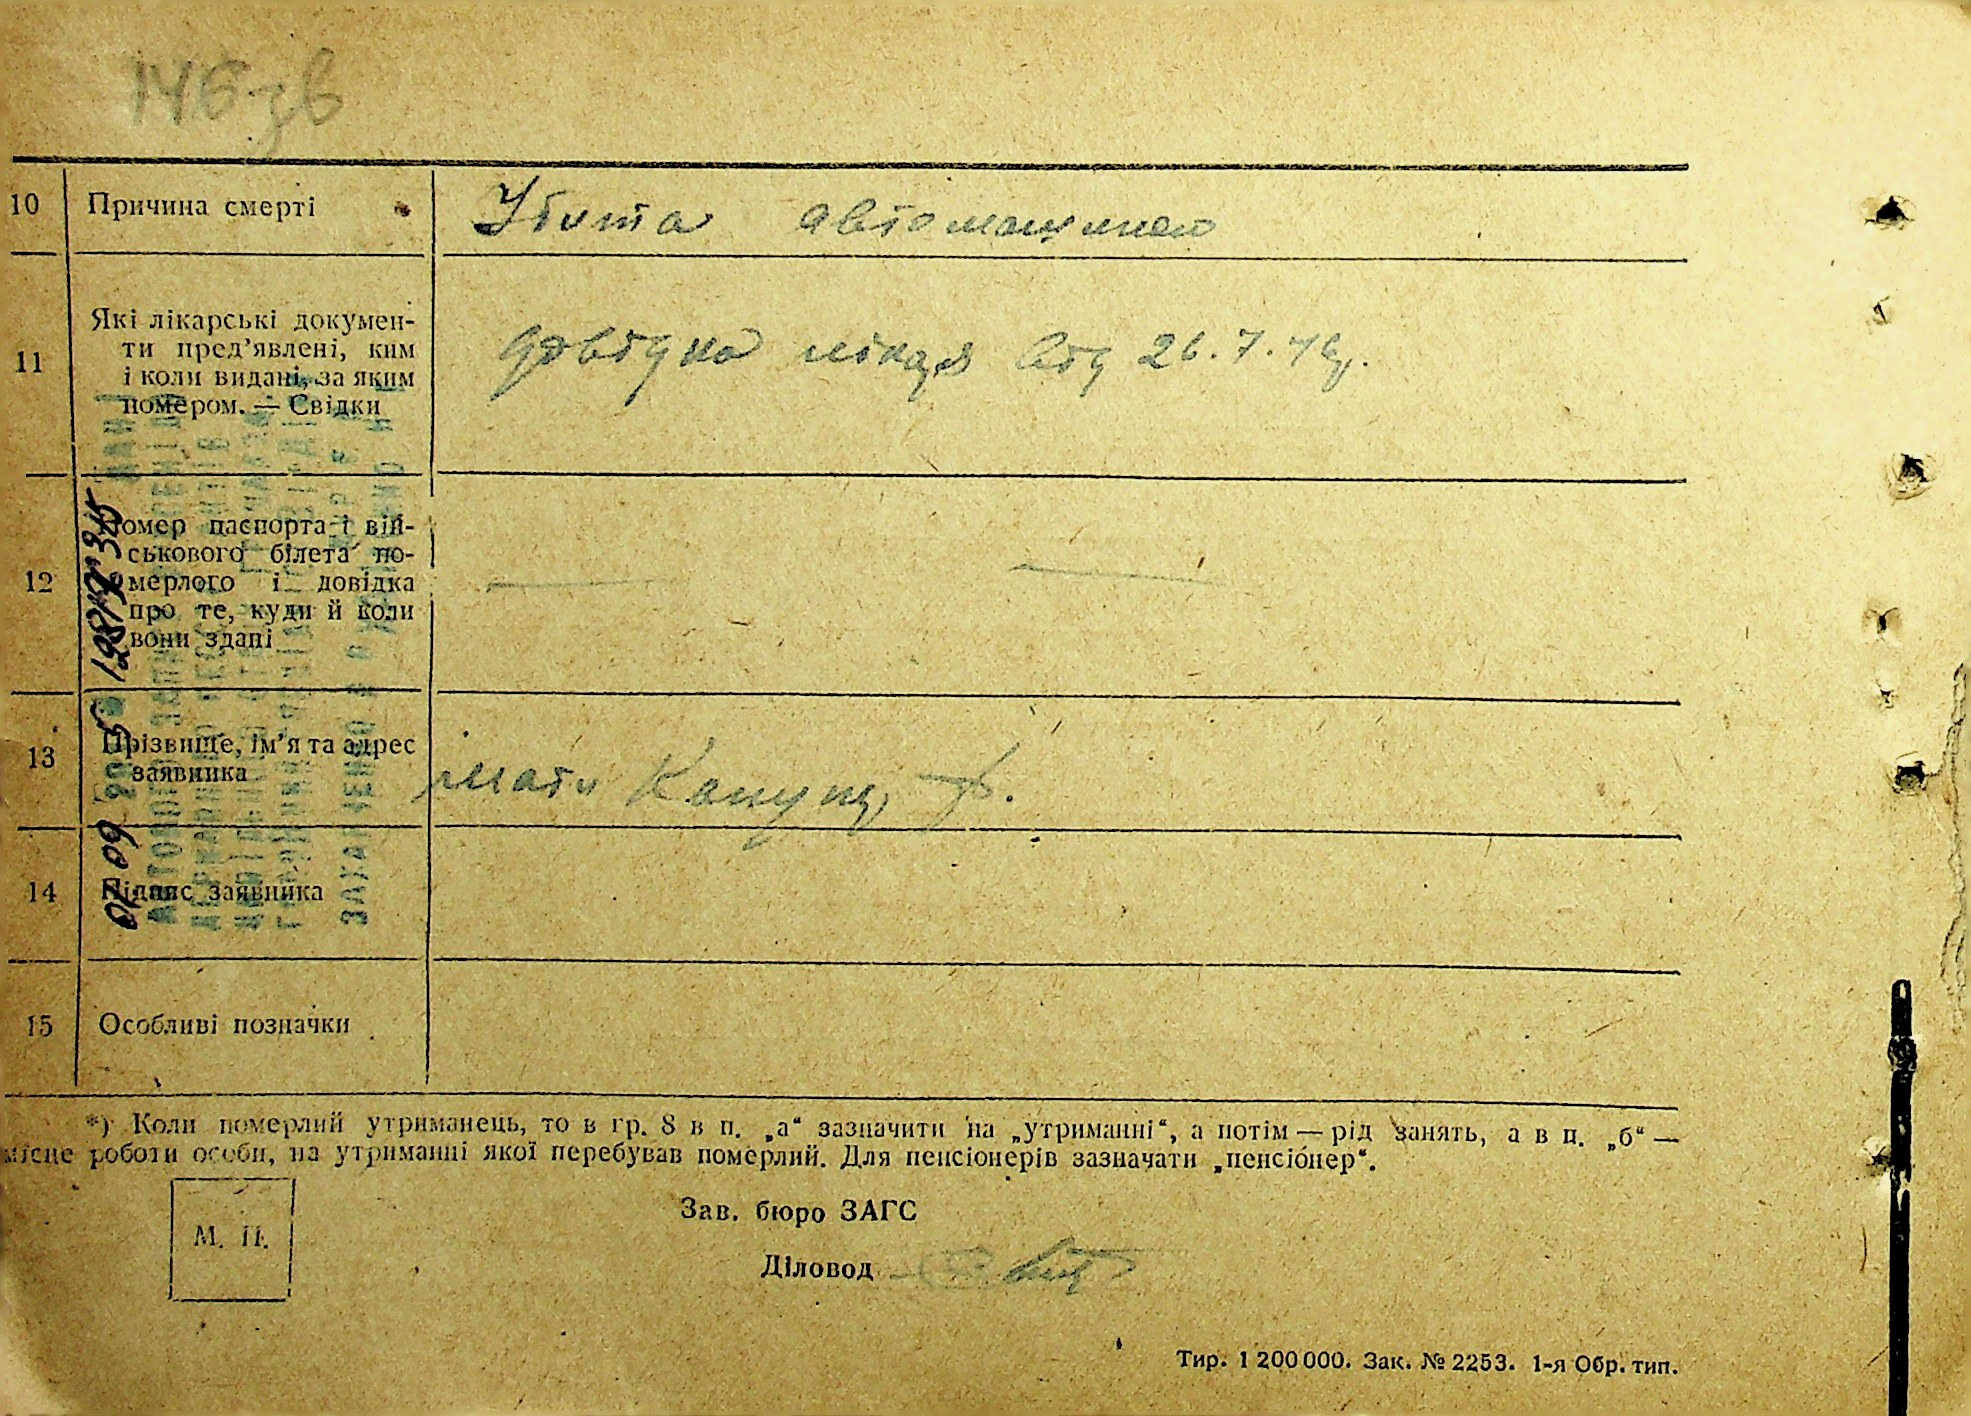 146 зв
10 Причина смерті Убита автомашиною
11 Які лікарські докумен-
ти пред’явлені, ким
і коли видані, за яким
номером. — Свідки
довідка лікаря від 26.7.
12 Номер паспорта і вій-
ськового білета по-
мерлого і довідка
про те, куди й коли
вони здані
13 Прізвище, ім’я та адрес
заявника
мати
14 Підпис заявника
15 Особливі позначки
*) Коли померлий утриманець, то в гр. 8 в п. „а“ зазначити на „утриманні“, а потім — рід занять, а в п. „б“ —
місце роботи особи, на утриманні якої перебував померлий. Для пенсіонерів зазначати „пенсіонер“.
М. П.
Зав. бюро ЗАГС
Діловод
Тир. 1 200 000. Зак. № 2253. 1-я Обр. тип.